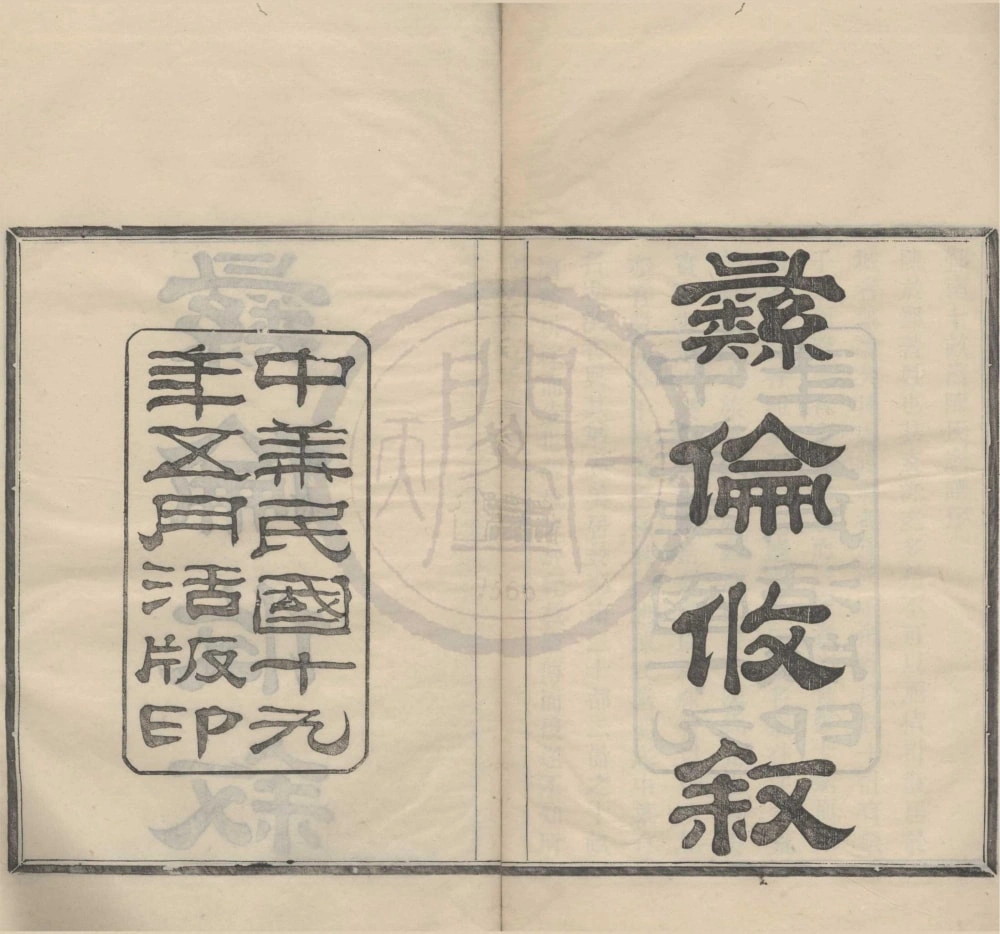 彝倫攸叙
中華民國十九
年五月活版印